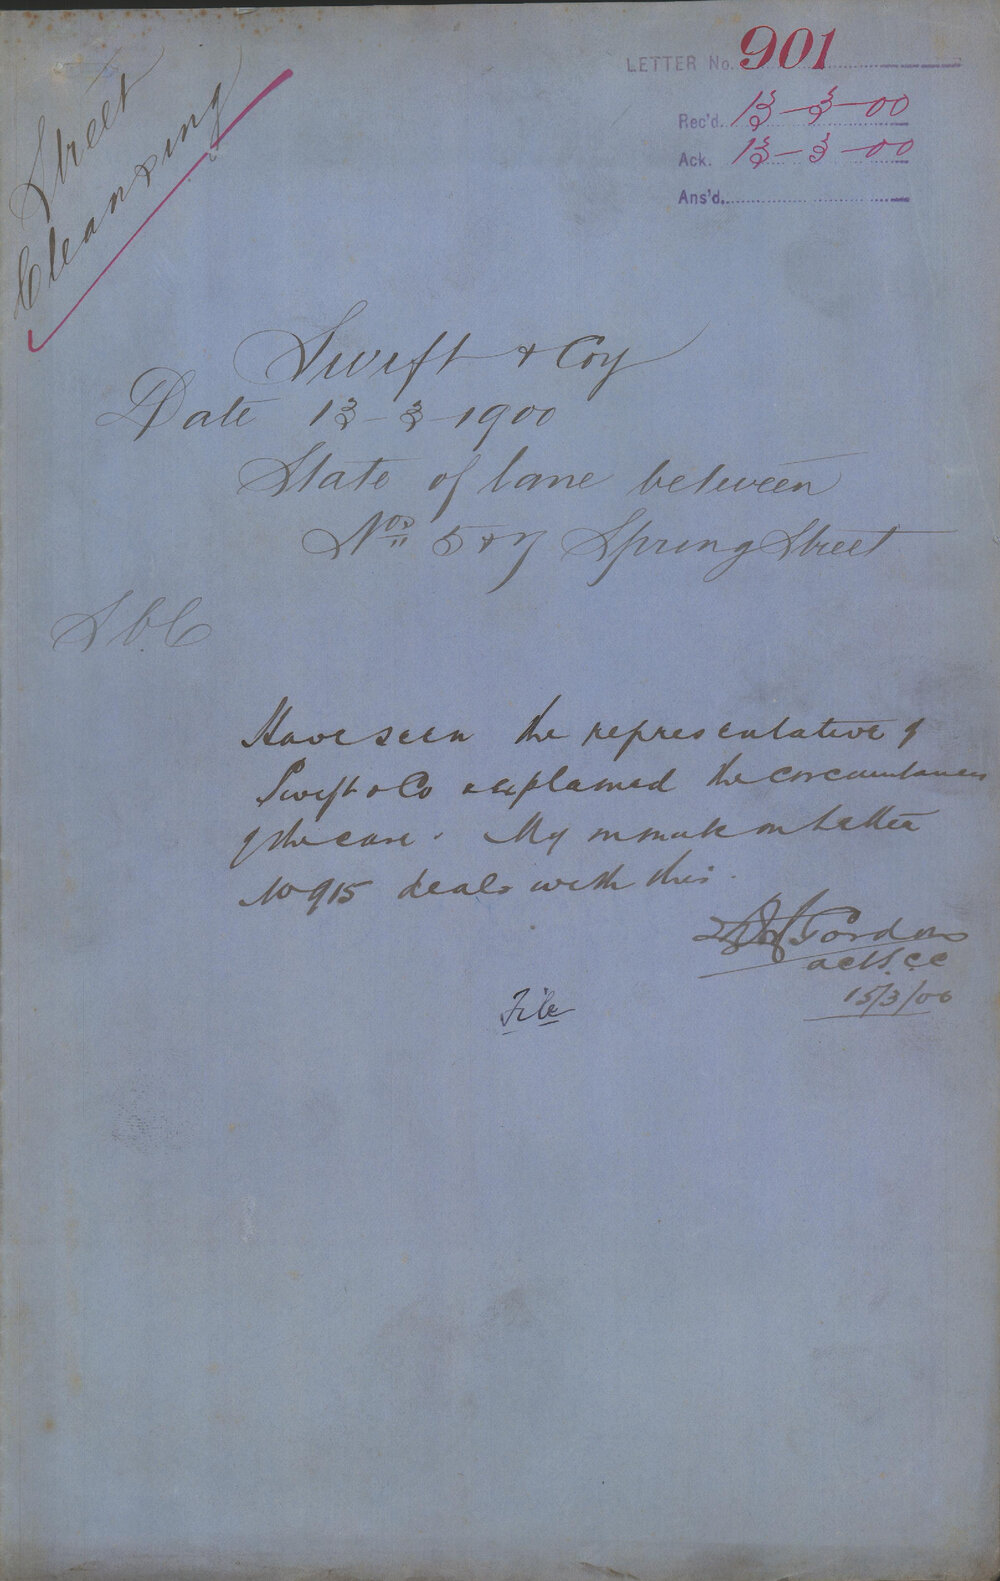 Street
Cleansing
LETTER No. 901
Rec'd. 13-3-00
Ack. 13-3-00
Ans'd.
Swift & Coy
Date 13-3-1900
State of lane between
Nos 5 & 7 Spring Street
Have seen the representative of
Swift & Co & explained the circumstances
of the case. My minute on Letter
No 915 deals with this.
Gordon
act. C.C
15/3/00
File